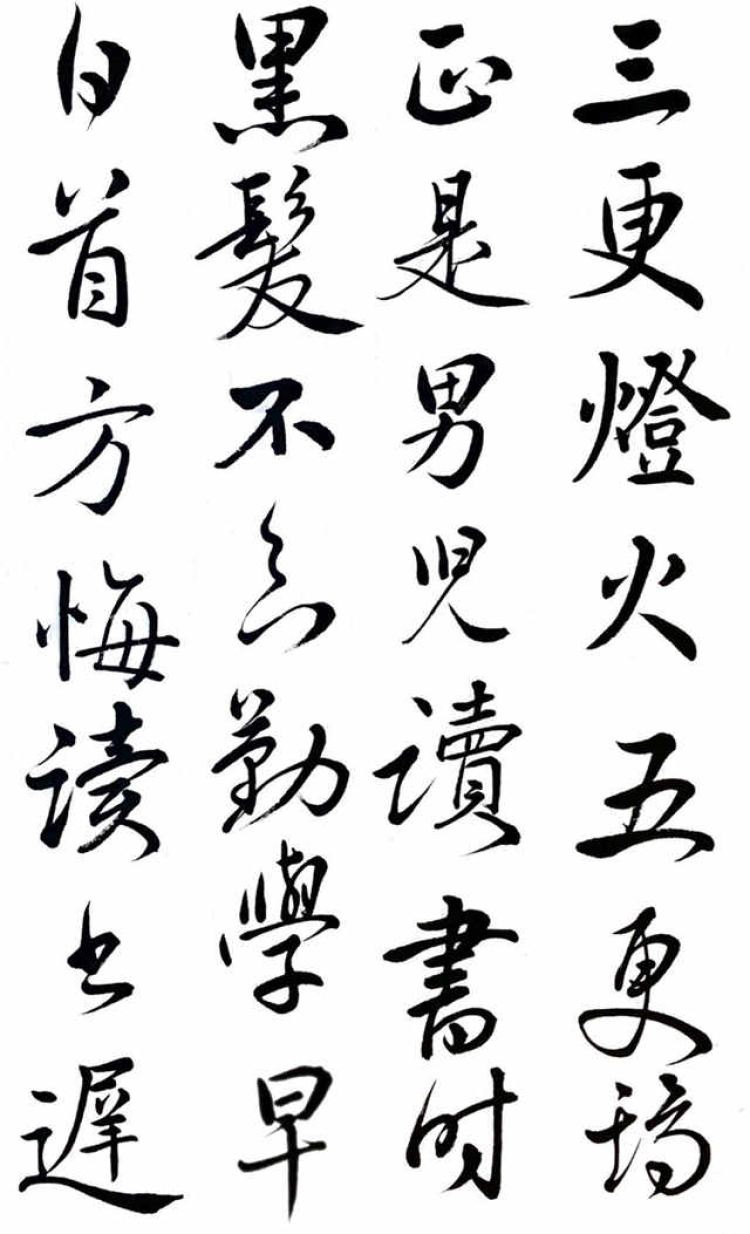 三更燈火五更鸡
正是男兒讀書时
黑髮不知勤學早
白首方悔读书遲